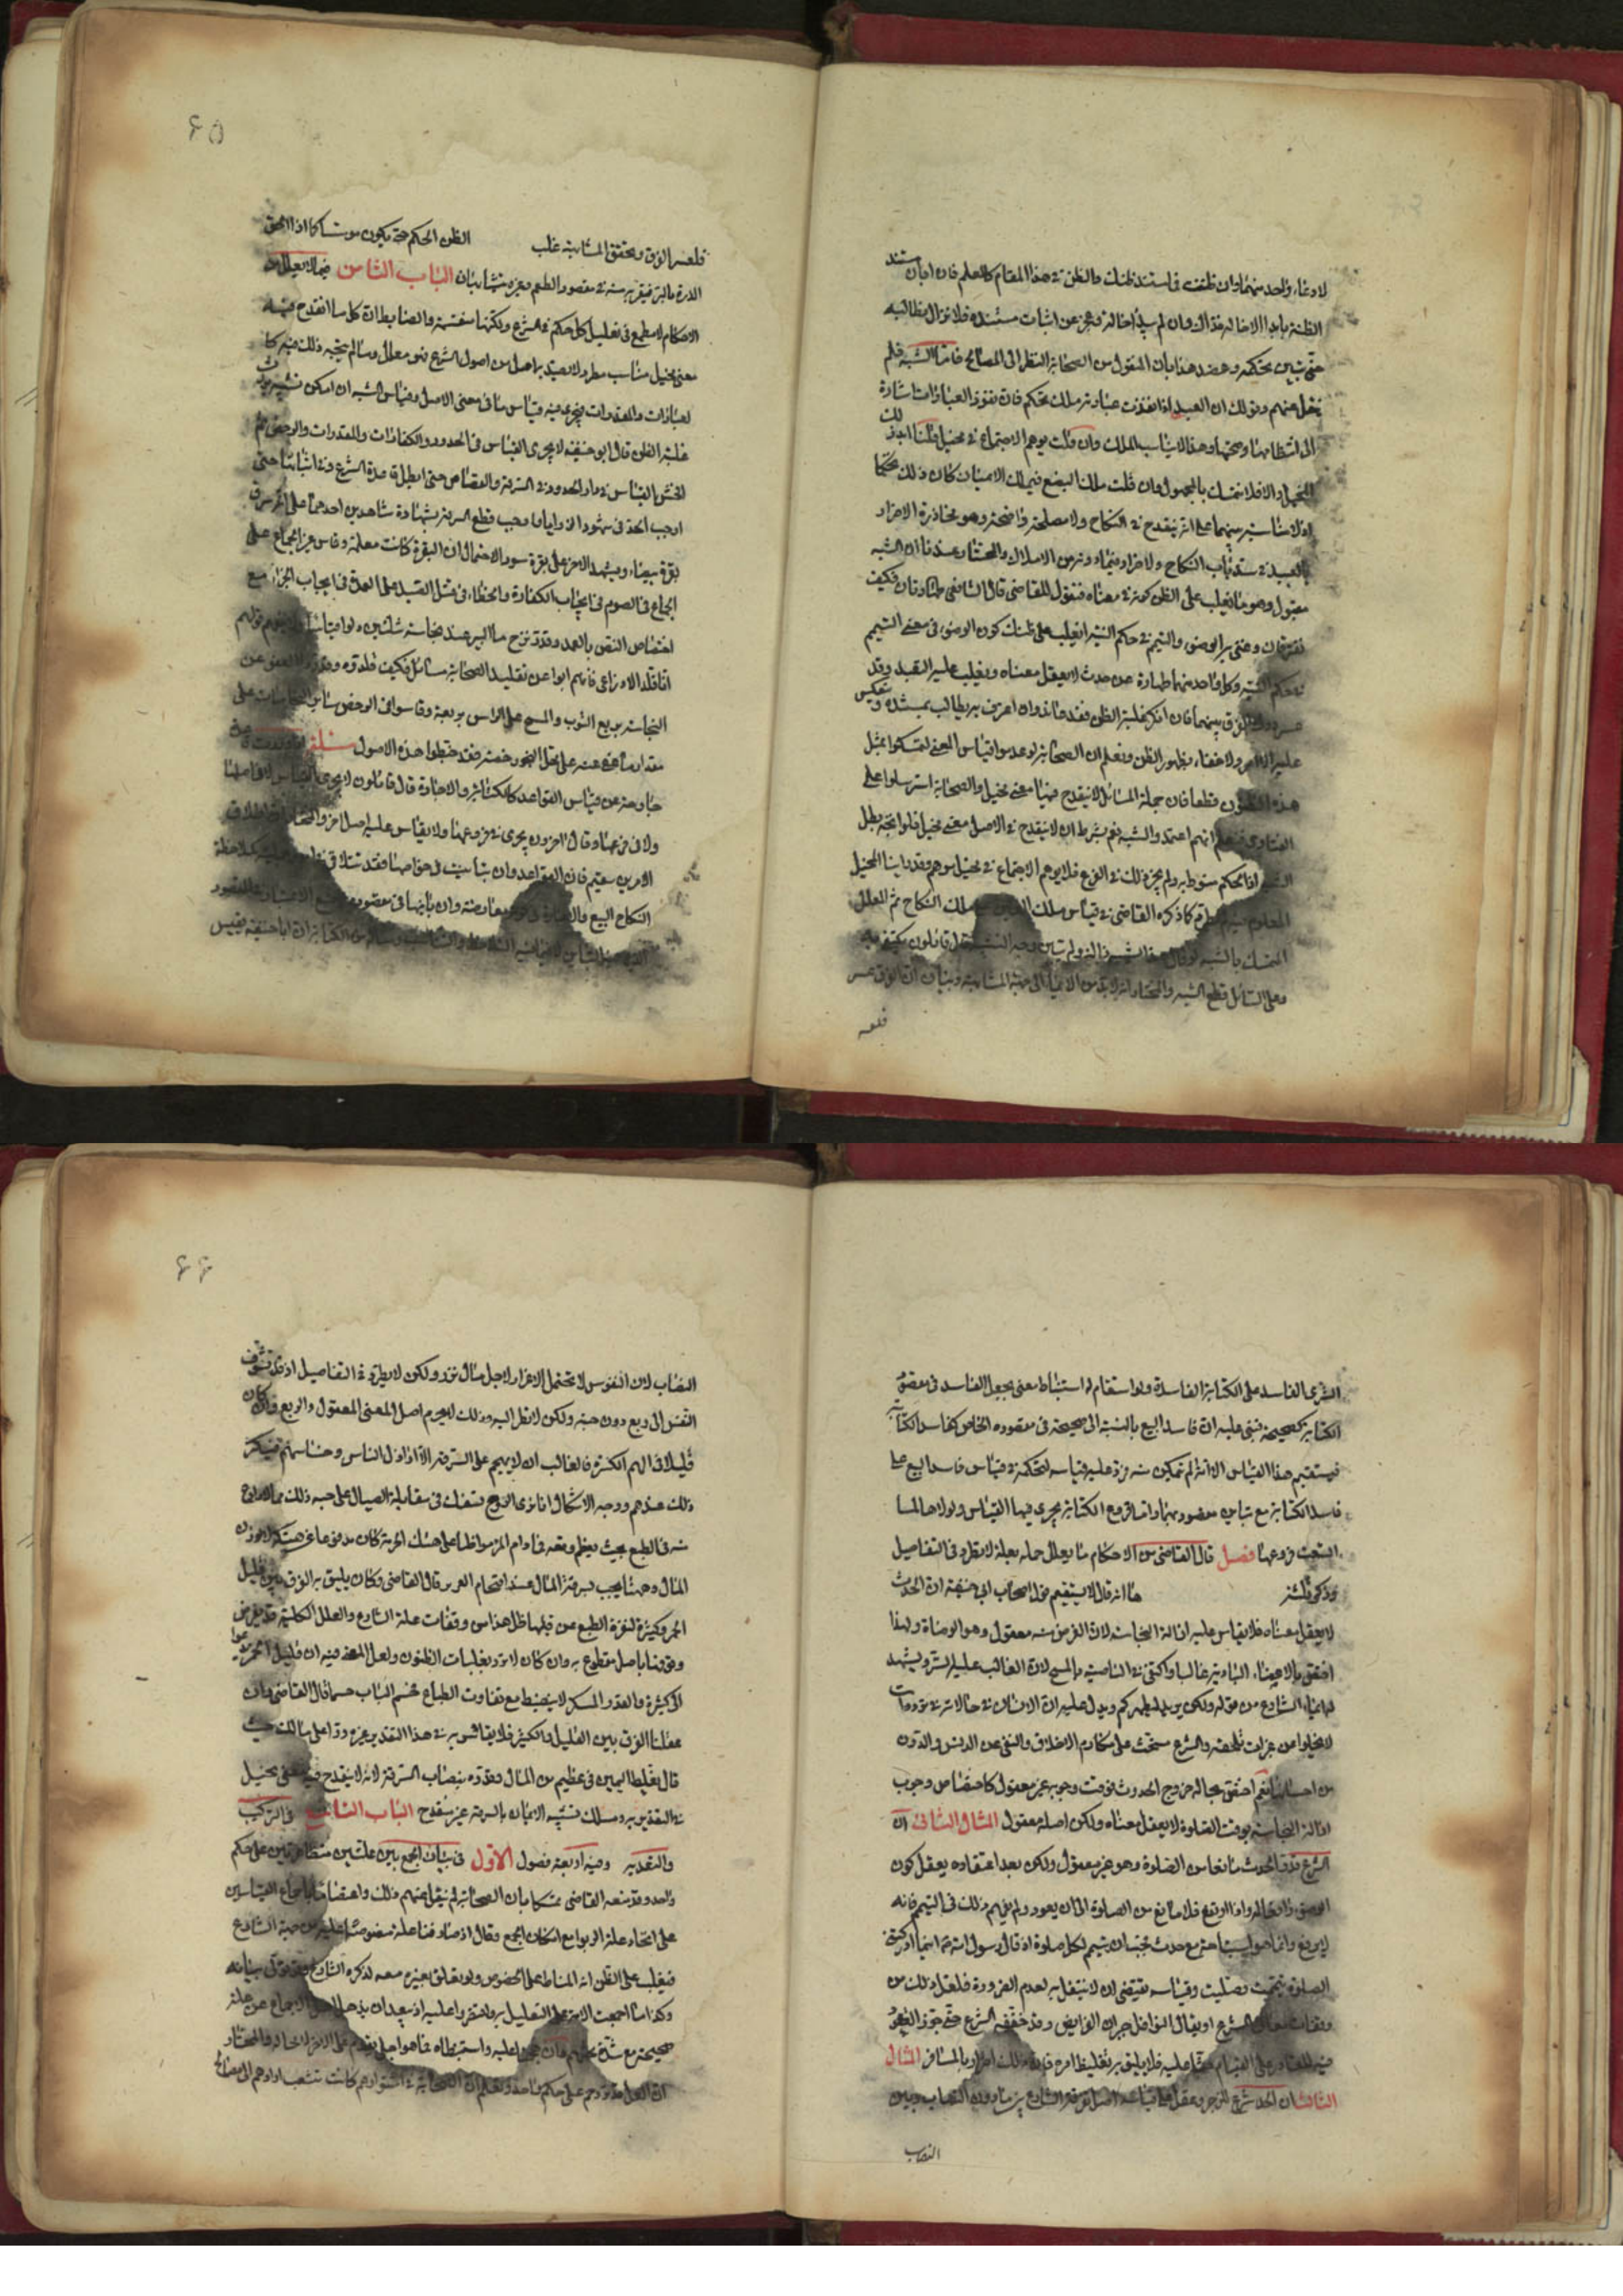 لادعاء واحد منهما وان ظننت فاستند ظنك والظن في هذا المقام كالعلم فان ابان مستند
الظنة بابداء الاخالة فذاك وان لم يبد اخالة وعجز عن اثبات مستنده فلا تزال مطالبه
حتى يتبين تحكمه وعضد هذا بان المنقول من الصحابة النظر الى المصالح فاما الشبه فلم
ينقل عنهم وقولك ان العبد اذا نفذت عباداته ملك تحكم فان نفوذ العبادات اشارة
الى انتظامها وصحتها وهذا لا يناسب الملك وان قلت يوهم الاجتماع في مخيل قلنا ابرز ذلك
المخيل والا فلا نتمسك بالمجهول وان قلت ملك البضع فيملك الاعيان كان ذلك تحكما
اذ لا مناسبة بينهما على انه ينقدح في النكاح ولا مصلحة واضحة وهو محاذرة الاضرار
بالعبد في سد باب النكاح ولا اضرار فيما دونه من الاملاك والمختار عندنا ان الشبه
مقبول وهو ما يغلب على الظن كونه في معناه فنقول للقاضي قال الشافعي طهارتان فكيف
تفترقان وعنى به الوضوء والتيمم في حكم النية ايغلب على ظنك كون الوضوء في معنى التيمم
في حكم النية وكل واحد منهما طهارة عن حدث لا يعقل معناه ويغلب عليه التعبد وقد
عسر درك الفرق بينهما فان انكر غلبة الظن فقد عاند وان اعترف به يطالب بمستنده وينعكس
عليه الامر ولا خفاء بظهور الظن ونعلم ان الصحابة لو عدموا قياس المعنى لتمسكوا بمثل
هذه الظنون قطعا فان جملة المسائل لا ينقدح فيها معنى مخيل والصحابة استرسلوا على
الفتاوى فنعلم انهم اعتمدوا الشبه نعم بشرط ان لا ينقدح في الاصل معنى مخيل فلو اتجه بطل
الشبه اذ الحكم منوط به ولم يجز ذلك في الفرع فلا يوهم الاجتماع في مخيل موهم وقد راينا المخيل
كما ذكره القاضي في قياس ملك ملك النكاح ثم المعلل
المتمسك بالشبه لو قال هذا الشبه ولم يتبين وجه الشبه قال قائلون يكتفى به
وعلى السائل قطع الشبه والمختار انه لا بد من الايماء الى جهة المشابهة وبيان ان الفرق عسر
فلعسر
٦٥
فلعسر الفرق وتحقق المشابهة غلب الظن الحكم حتى يكون مؤسسا كما اذا الحق
الذرة بالبر فيقر به منه في مقصود الطعم وغيره يتشابهان الباب الثامن فيما لا يعلل من
الاحكام لا مطمع في تعليل كل حكم في الشرع ولكنها منقسمة والضابط ان كل ما انقدح فيه
معنى مخيل مناسب مطرد لا يصد به اصل من اصول الشرع فهو معلل وما لم يتجه ذلك فيه كما
لعبادات والمقدرات يجري فيه قياس ما في معنى الاصل وقياس الشبه ان امكن تشبيه يورث
غلبة الظن قال ابو حنيفة لا يجري القياس في الحدود والكفارات والمقدرات والرخص ثم
افحش القياس في دار الحدود في السرقة والقصاص حتى ابطل قاعدة الشرع وفي اثباتها حتى
اوجب الحد في شهود الزوايا واوجب قطع السرقة بشهادة شاهدين احدهما على انه سرق
بقرة بيضاء ويشهد الاخر على بقرة سوداء لاحتمال ان البقرة كانت معلمة وقاس غير الجماع على
الجماع في الصوم في ايجاب الكفارة والخطاء في قتل الصيد على العمد في ايجاب الجزاء مع
اختصاص النص بالعمد وقدر نزح ماء البير عند نجاسة ثلثين دلوا قياسا قولهم
انا قلدنا الاوزاعي فانهم ابوا عن تقليد الصحابة مسائل فكيف قلدوه وقدروا العفو عن
النجاسة بربع الثوب والمسح على الراس بربعه وقاسوا في الرخص سائر النجاسات على
مقدار ما عفي عنه على محل النجو رخصة فقد خبطوا هذه الاصول مسئلة
عبارة عن قياس القواعد كالكتابة والاجارة قال قائلون لا يجري القياس لا في اصلها
ولا في فرعها وقال اخرون يجري في فرعها ولا يقاس عليه اصل اخر والمختار
الامرين سقيم فان القواعد وان تباينت في خواصها فقد تتلاقى كملاحظة
النكاح البيع والاجارة في كونه معاوضة وان باينها في مقصوده
الكتابة ان ابا حنيفة يقيس
الشرى الفاسد على الكتابة الفاسدة ولو استقام له استنباط معنى يجعل الفاسد في مقصود
الكتابة كصحيحه فيبنى عليه ان فاسد البيع بالنسبة الى صحيحه في مقصوده الخاص كفاسد الكتابة
فيستقيم هذا القياس الا انه لم يتمكن منه فرد عليه قياسه لتحكمه في قياس فاسد البيع على
فاسد الكتابة مع تباين مقصوديهما وافتراق مع الكتابة يجري فيها القياس ولولاها لما
اتسعت فروعها فصل قال القاضي من الاحكام ما يعلل جملته بعلة لا تطرد في التفاصيل
وذكر ثلثة ها انه قال لا يستقيم قول اصحاب ابي حنيفة ان الحدث
لا يعقل معناه فلا يقاس عليه ازالة النجاسة لان الغرض منه معقول وهو الوضاءة ولهذا
اختص بالاعضاء البادية غالبا واكتفى في الناصية بالمسح لان الغالب عليه الستر ويشهد
له ايماء الشارع من قوله ولكن يريد ليطهركم ويدل عليه ان الانسان في حالاته في تردداته
لا يخلوا من غبرات تلحقه والشرع مستحث على مكارم الاخلاق والنهي عن الدنس والدرن
من احسانها نعم اختص بحالة خروج الحدوث بوقت وجوبه غير معقول كاختصاص وجوب
ازالة النجاسة بوقت الصلوة لا يعقل معناه ولكن اصله معقول المثال الثاني ان
الشرع قدر الحدث مانعا من الصلوة وهو غير معقول ولكن بعد اعتقاده يعقل كون
الوضوء رافعا له واذا ارتفع فلا مانع من الصلوة الى ان يعود ولم يفهم ذلك في التيمم فانه
لا يرفع وانما هو استباحة مع حدث فحسبان يتيمم لكل صلوة اذ قال رسول الله اينما ادركتني
الصلوة تيممت وصليت وقياسه يقتضي ان لا ينتفل به لعدم الضرورة فلعل ذلك من
الشرع او يقال النوافل جبران الفرايض وقد خففه الشرع حتى جوز القعود
فيه للقادر على القيام حثا عليه فلا يليق به تغليظ امره اضرار بالمسافر المثال
الثالث ان الحد شرع للزجر الشارع بين ما دون النصاب وبين
النصاب
٦٦
النصاب لان النفوس لا تحتمل الاغرار لاجل مال نزر ولكن لا يطرد في التفاصيل اذ قد تتشوف
النفس الى ربع دون حبة ولكن لا نظر اليه وذلك لا يخرم اصل المعنى المعقول والربع وان كان
قليلا في الهمم الكثيرة فالغالب ان لا يهجم على السرقة الا اراذل الناس وخساسهم فيتكرر
ذلك عندهم ووجه الاشكال انا نرى الروح تسفك في مقابلة الصيال على حبة وذلك مما لا يدرك
منه في الطبع بحيث يعظم وقعه فما دام المرء مواظبا على هتك الحرمة كان مدفوعا عن هتكه لا يوزن
المال وحده انما يجب بسرقة المال عند اقتحام الغرر قال القاضي وكان يليق به الفرق بين قليل
الخمر وكثيره لنفرة الطبع عن قليله الا ان هذا من وقفات علة الشارع والعلل الكلية قد يعرض
وقوفنا باصل مقطوع به وان كان لا ترد بغلبات الظنون ولعل المعنى فيه ان قليل الخمر يدعوا
الى كثيره والقدر المسكر لا ينضبط مع تفاوت الطباع فحسم الباب حسما قال القاضي وان
عقلنا الفرق بين القليل والكثير فلا يقاس به في هذا التقدير غيره وردا على مالك حيث
قال بتغليظ اليمين في عظيم من المال وقدره بنصاب السرقة لانه لا ينقدح فيه معنى مخيل
في التقدير به ومسلك تشبيه الايمان بالسرقة غير منقدح الباب التاسع في التركيب
والتعدية وفيه اربعة فصول الاول في بيان الجمع بين علتين متظاهرتين على حكم
واحد وقد منعه القاضي متمسكا بان الصحابة لم ينقل عنهم ذلك واعتضد باجماع القياسين
على اتحاد علة الربوا مع امكان الجمع وقال اذ صادفنا علة منصوصة من جهة الشارع
فيغلب على الظن انه المناط على الخصوص ولو تعلق بغيره معه لذكره الشارع بيانه
وكذا ما اجمعت الامة على التعليل به واقتصروا عليه اذ يبعد ان يذهل اهل الاجماع عن علة
صحيحة مع شدة بحثهم فان عليه واستنبطاه فما هو اجلى يقدم على الاخر لا محالة والمختار
ان العلل قد تزدحم على حكم واحد ونعلم ان الصحابة في اشتوارهم كانت تتشعب اراؤهم الى مصالح